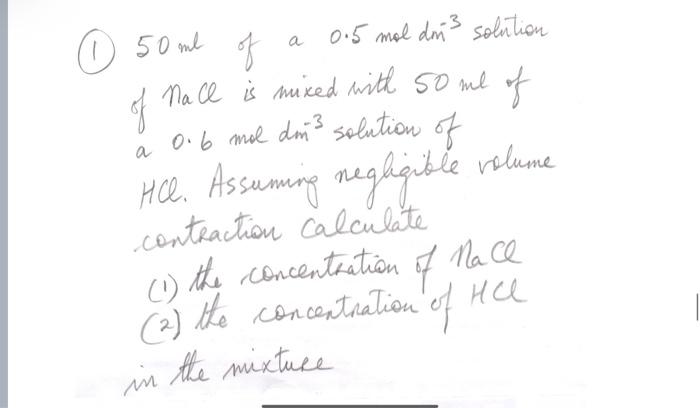 ① 50 ml of a 0.5 mol dm⁻³ solution
of NaCl is mixed with 50 ml of
a 0.6 mol dm⁻³ solution of
HCl. Assuming negligible volume
contraction calculate
(1) the concentration of NaCl
(2) the concentration of HCl
in the mixture